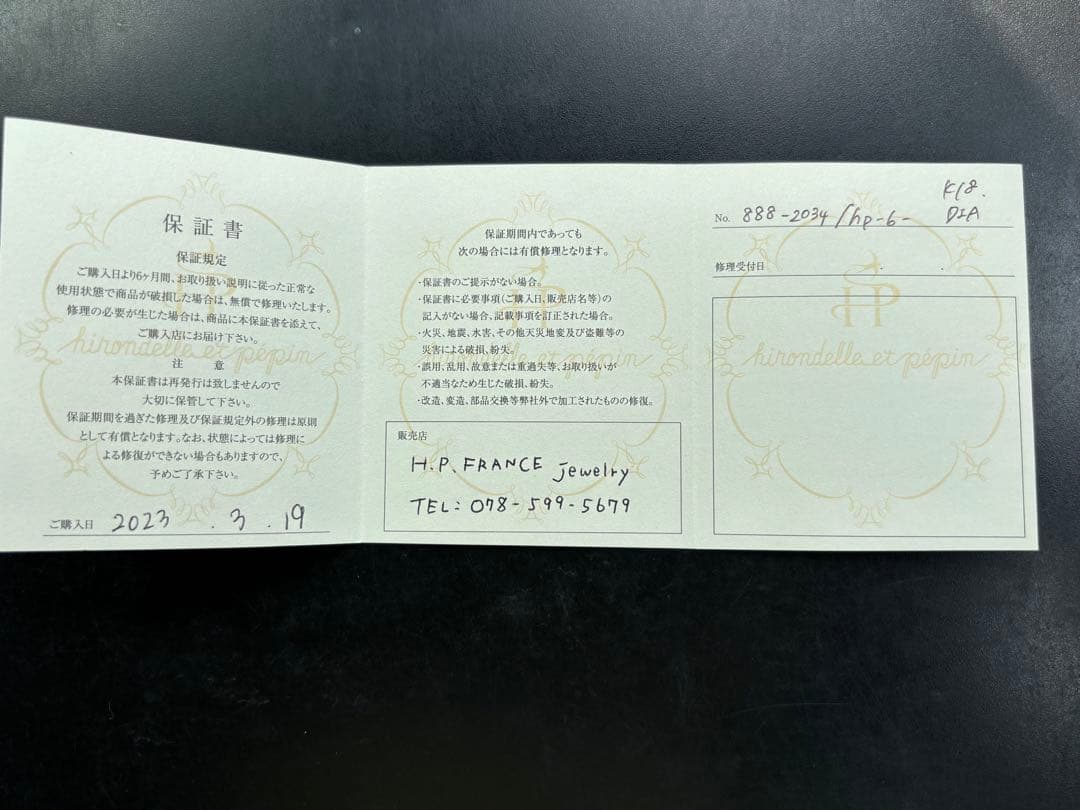 保証書
保証規定
ご購入日より6ヶ月間、お取り扱い説明に従った正常な
使用状態で商品が破損した場合は、無償で修理いたします。
修理の必要が生じた場合は、商品に本保証書を添えて、
ご購入店にお届け下さい。
注 意
本保証書は再発行は致しませんので
大切に保管して下さい。
保証期間を過ぎた修理及び保証規定外の修理は原則
として有償となります。なお、状態によっては修理に
よる修復ができない場合もありますので、
予めご了承下さい。
ご購入日 2023 . 3 . 19
HP
hirondelle et pépin
保証期間内であっても
次の場合には有償修理となります。
・保証書のご提示がない場合。
・保証書に必要事項(ご購入日、販売店名等)の
記入がない場合、記載事項を訂正された場合。
・火災、地震、水害、その他天災地変及び盗難等の
災害による破損、紛失。
・誤用、乱用、故意または重過失等、お取り扱いが
不適当なため生じた破損、紛失。
・改造、変造、部品交換等弊社外で加工されたものの修復。
販売店
H.P.FRANCE jewelry
TEL: 078-599-5679
hirondelle et pépin
K18.
No. 888-2034/hp-6- DIA
修理受付日 . .
HP
hirondelle et pépin